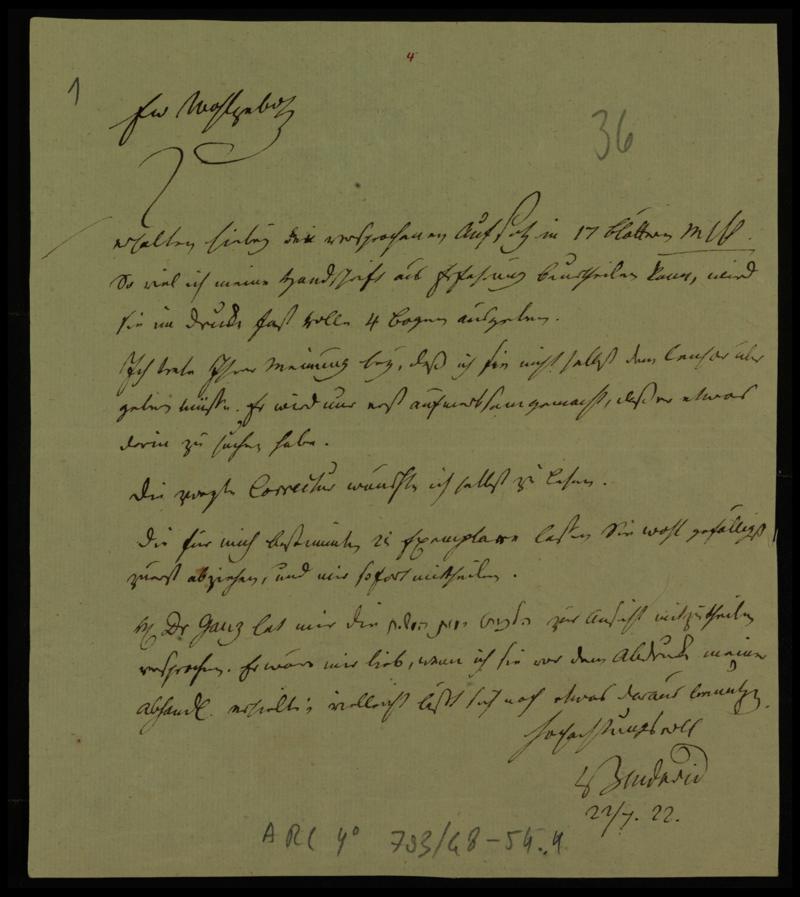 4
1
36
Ew Wohlgeb.
erhalten hiebey den versprochenen Aufsatz in 17 Blättern Mss.
So viel ich meine Handschrift aus Erfahrung beurtheilen kann, wird
sie im Drucke fast volle 4 Bogen ausgeben.
Ich trete Ihrer Meinung bey, daß ich sie nicht selbst dem Censor über
geben müsse. Er wird nur erst aufmerksam gemacht, daß er etwas
darin zu suchen habe.
Die Correctur wünschte ich selbst zu lesen.
Die für mich bestimmten Exemplare lassen Sie wohl gefälligst
zuerst abziehen, und mir sofort mittheilen.
H Dr Ganz hat mir die zur Ansicht mitzutheilen
versprochen. Es wäre mir lieb, wenn ich sie vor dem Abdrucke meiner
Abhandl. erhielte; vielleicht läßt sich noch etwas daraus benutzen.
Hochachtungsvoll
Bendavid
22/7. 22.
ARC 4° 793/G8-54.4